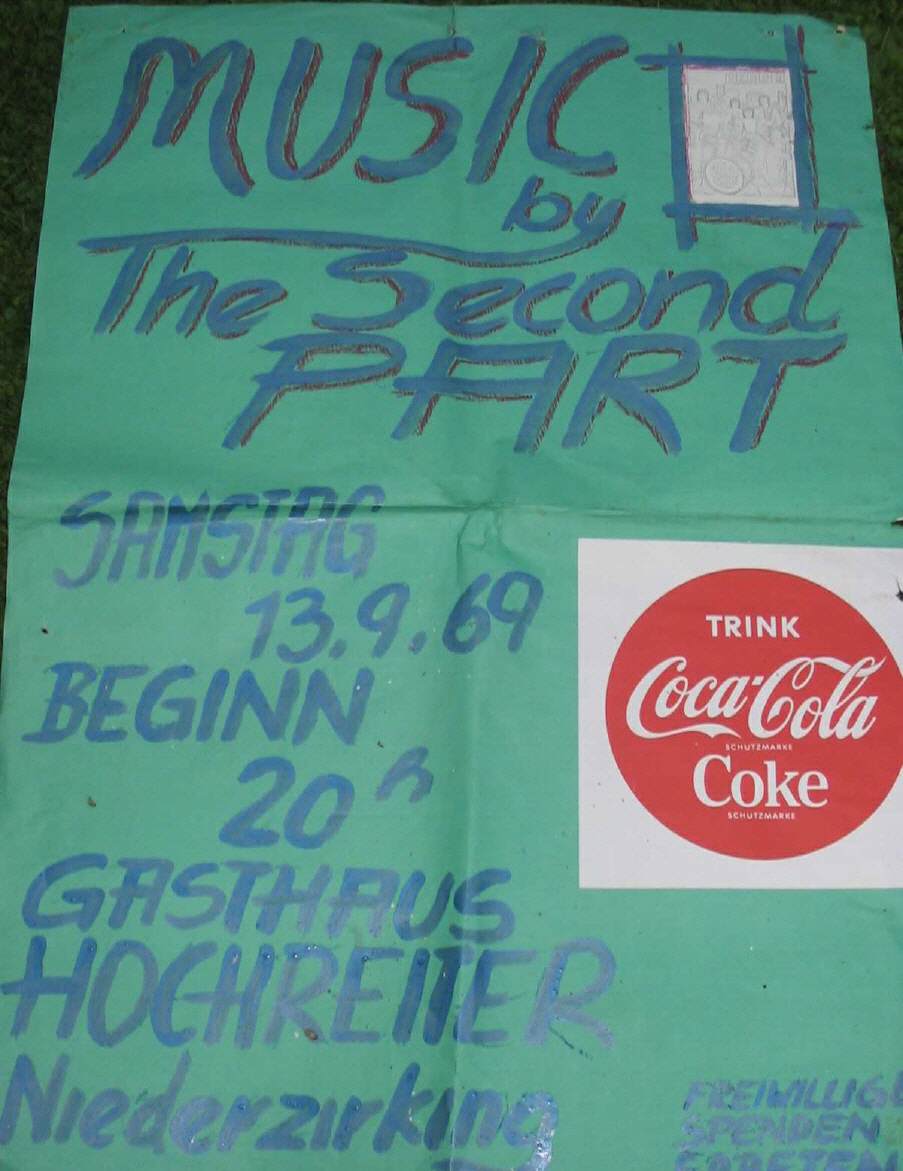 MUSIC
by
The Second
PART
SAMSTAG
13.9.69
BEGINN
20 h
GASTHAUS
HOCHREITER
Niederzirking
TRINK
Coca-Cola
SCHUTZMARKE
Coke
SCHUTZMARKE
FREIWILLIGE
SPENDEN